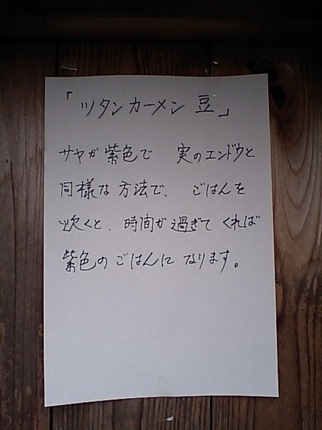 「ツタンカーメン豆」
サヤが紫色で 実のエンドウと
同様な方法で、ごはんを
炊くと、時間が過ぎてくれば
紫色のごはんになります。